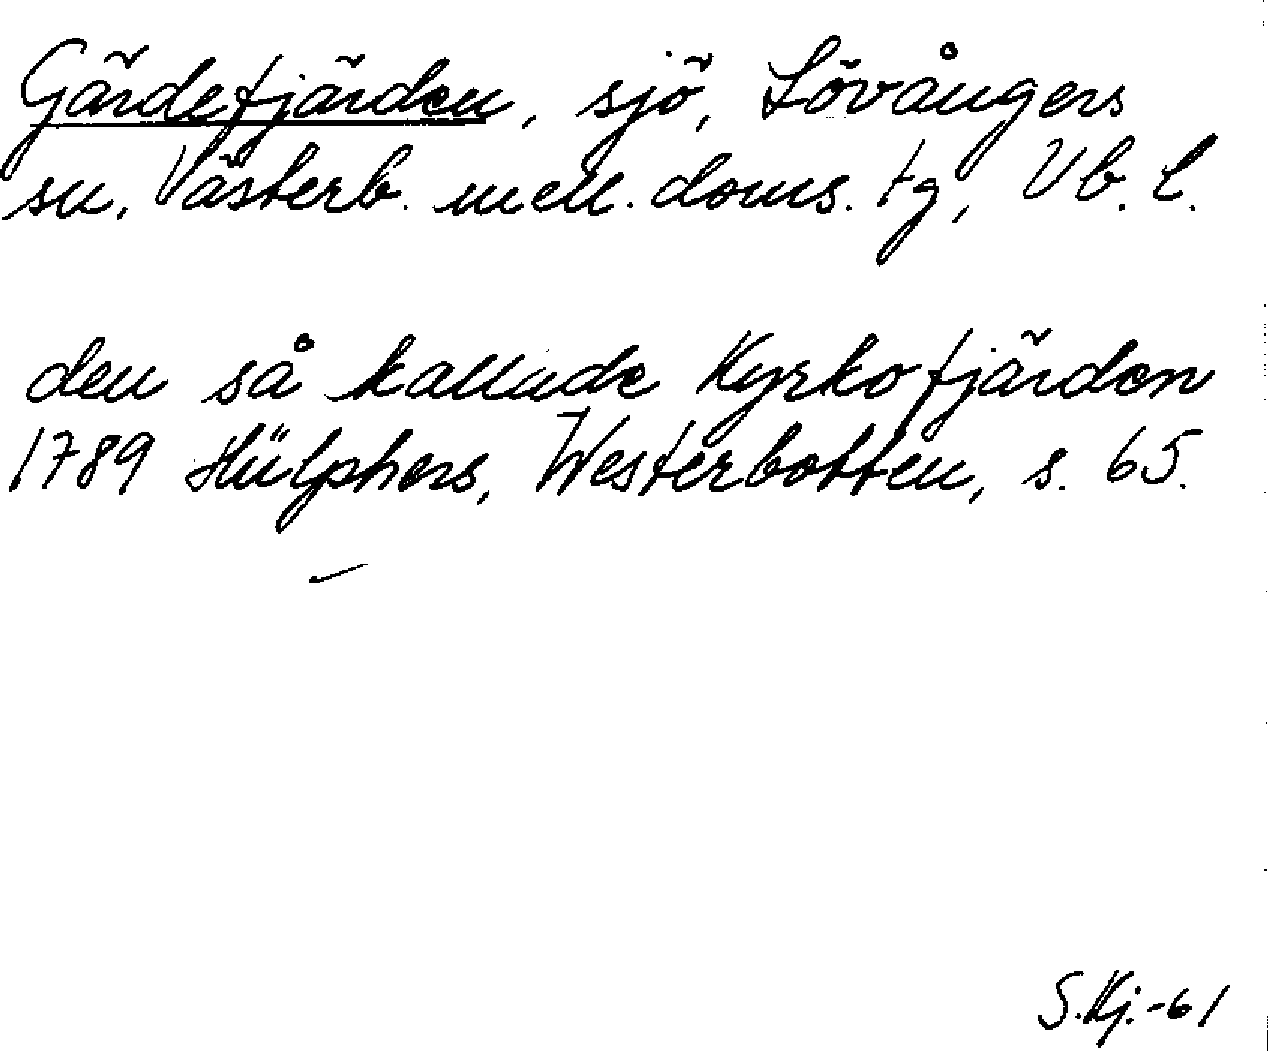 Gärdefjärden, sjö, Lövångers
sn. Västerb. mell. doms. tg, Vb. l.
den så kallade Kyrkofjärden
1789 Hülphers, Westerbotten, s. 65.
S.Kj.-61